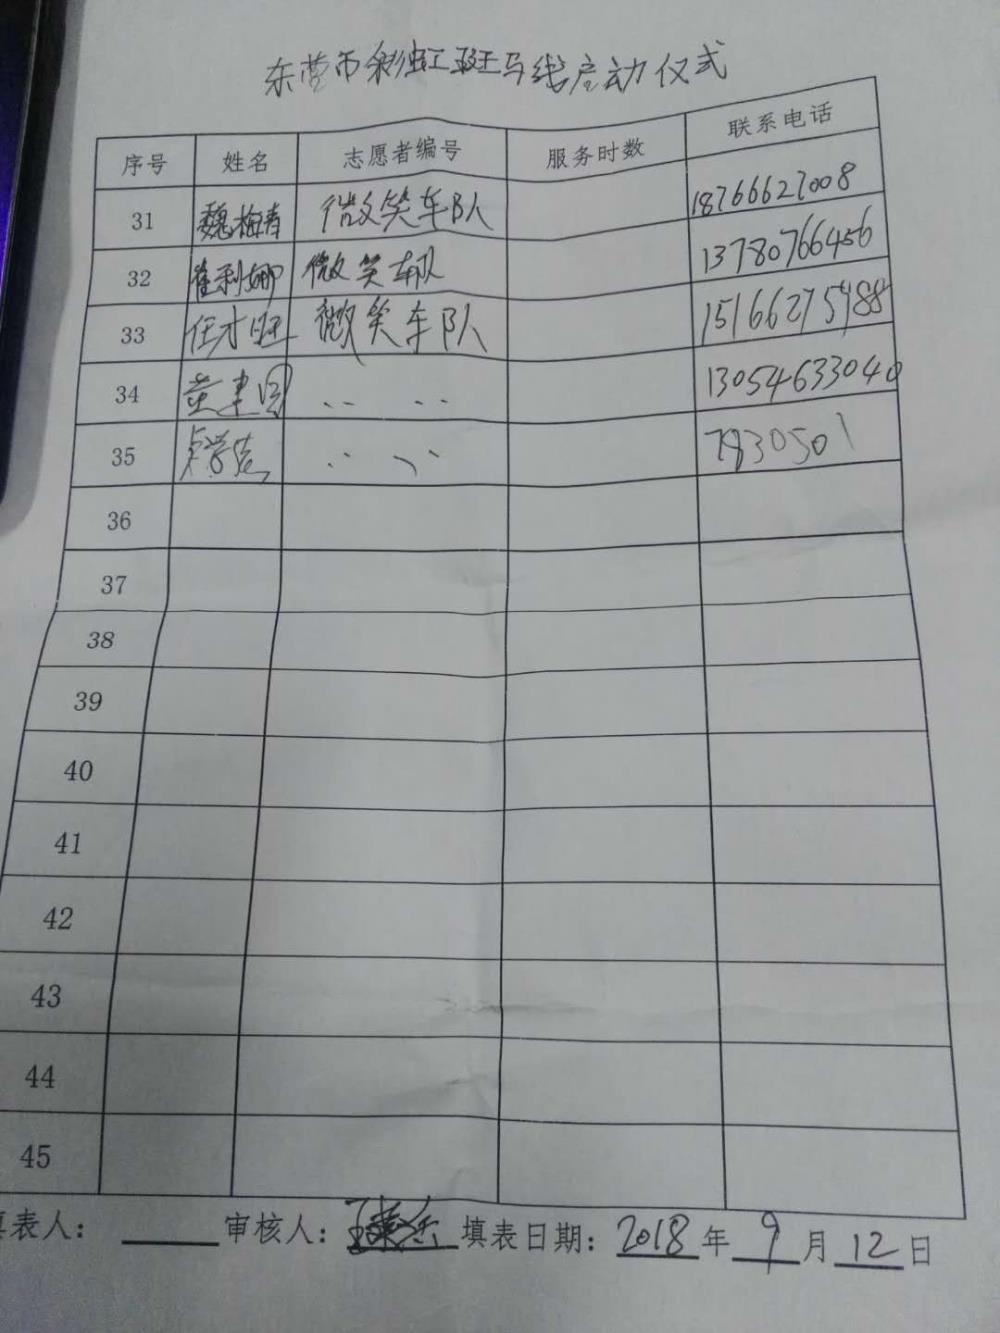 东营市彩虹斑马线启动仪式
序号 姓名 志愿者编号 服务时数 联系电话
31 魏梅青 微笑车队 18766627008
32 崔利娜 微笑车队 13780766456
33 任才旺 微笑车队 15166275988
34 董建国 ‥ ‥ 13054633040
35 ‥ ‥ 7830501
36
37
38
39
40
41
42
43
44
45
填表人： 审核人： 填表日期：2018年9月12日